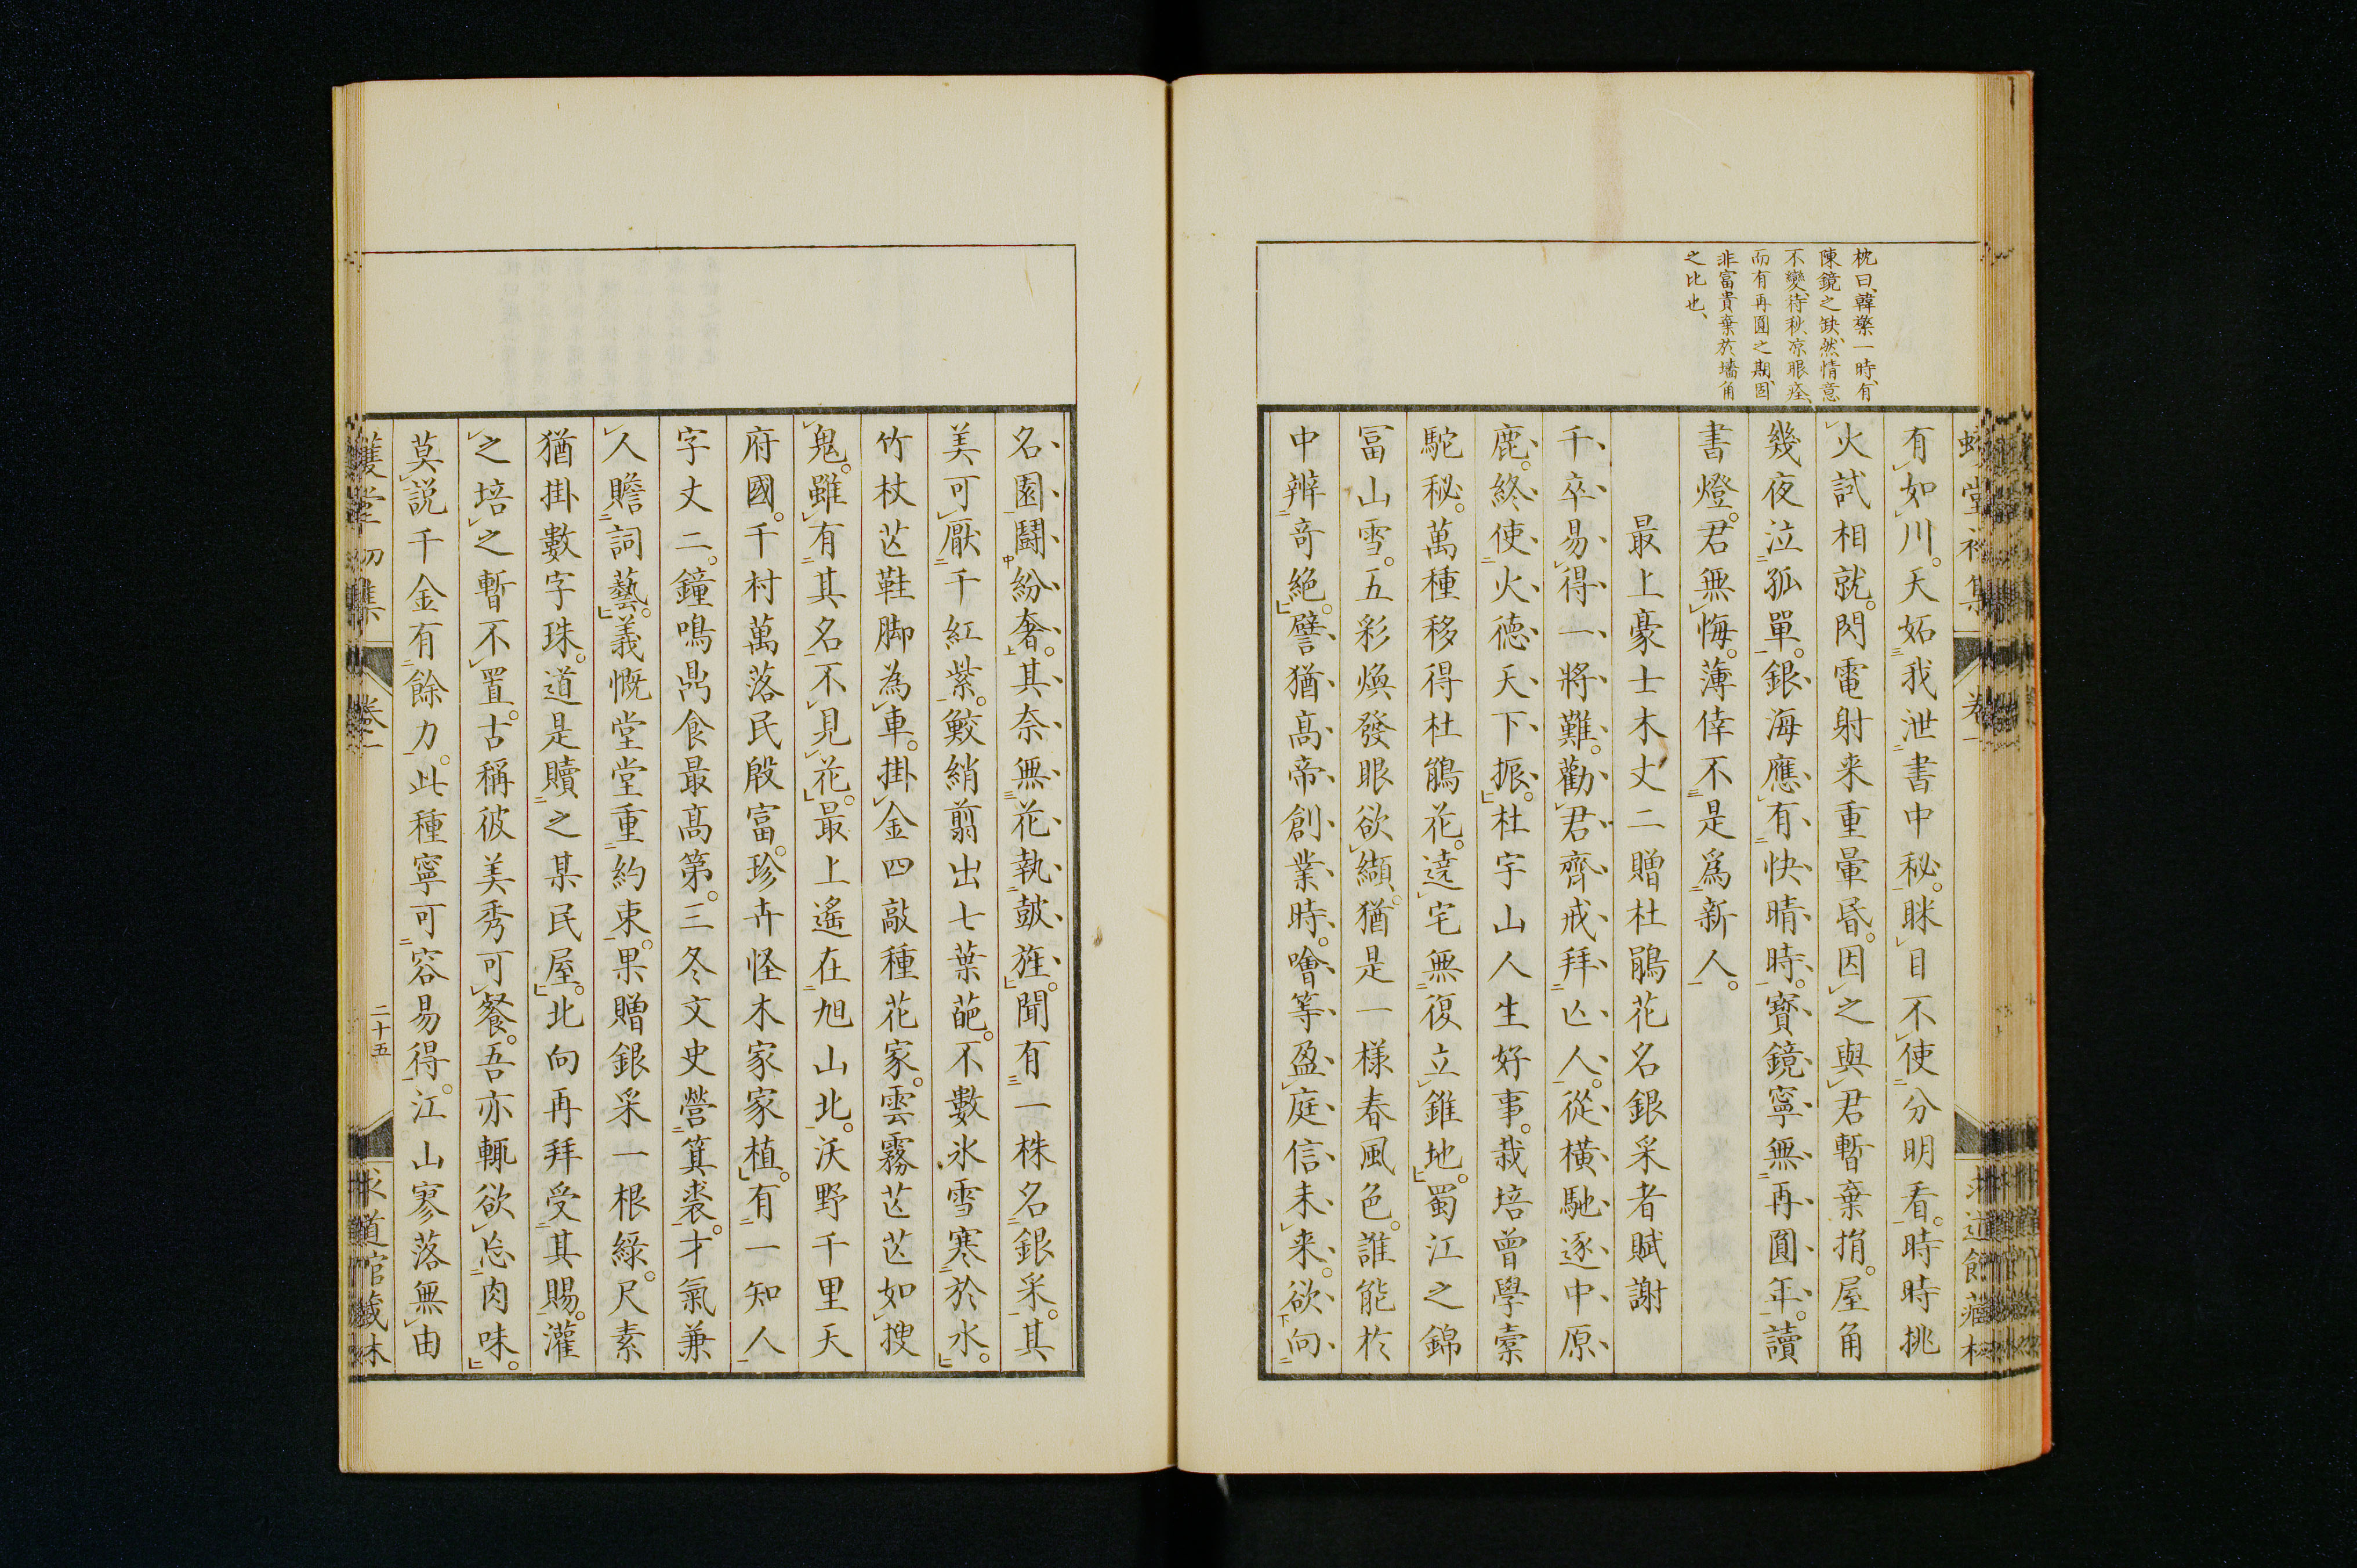 枕曰、韓藥一時、有
陳鏡之缺、然情意
不變、待秋凉眼痊、
而有再圓之期、固
非富貴棄於墻角
之比也、
有如川。天妬我泄書中秘。眯目不使分明看。時時挑
火試相就。閃電射来重暈昏。因之與君暫棄捐。屋角
幾夜泣孤單。銀海應有快晴時。寳鏡寧無再圓年。讀
書燈。君無悔。薄倖不是爲新人。
最上豪士木丈二贈杜鵑花名銀采者賦謝
千卒易得一將難。勸君齊戒拜亾人。從横馳逐中原
鹿。終使火德天下振。杜宇山人生好事。栽培曽學橐
駝秘。萬種移得杜鵑花。遶宅無復立錐地。蜀江之錦
冨山雪。五彩煥發眼欲纈。猶是一様春風色。誰能於
中辨奇絶。譬猶高帝創業時。噲等盈庭信未来。欲向
名園鬪紛奢。其奈無花執鼓旌。聞有一株名銀采。其
美可厭千紅紫。鮫綃翦出七葉葩。不數氷雪寒於水。
竹杖芒鞋脚為車。掛金四敲種花家。雲霧茫茫如捜
鬼。雖有其名不見花。最上遙在旭山北。沃野千里天
府國。千村萬落民殷富。珍卉怪木家家植。有一知人
字丈二。鐘鳴鼎食最高第。三冬文史營箕裘。才氣兼
人贍詞藝。義慨堂堂重約束。果贈銀采一根綠。尺素
猶掛數字珠。道是贖之某民屋。北向再拜受其賜。灌
之培之暫不置。古稱彼美秀可餐。吾亦輒欲忘肉味。
莫説千金有餘力。此種寧可容易得。江山寥落無由
二十五